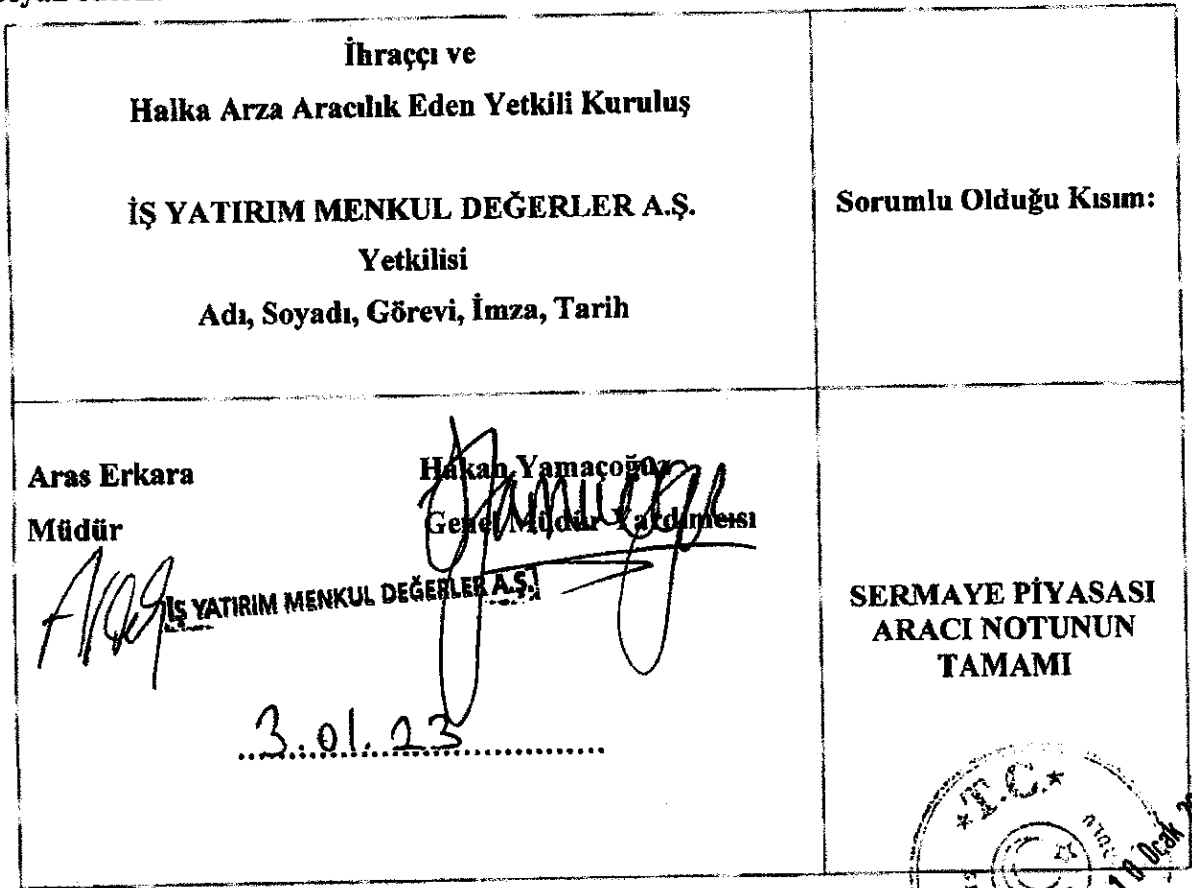 İhraççı ve
Halka Arza Aracılık Eden Yetkili Kuruluş
İŞ YATIRIM MENKUL DEĞERLER A.Ş.
Yetkilisi
Adı, Soyadı, Görevi, İmza, Tarih
Sorumlu Olduğu Kısım:
Aras Erkara
Müdür
Hakan Yamaçoğuz
Genel Müdür Yardımcısı
İŞ YATIRIM MENKUL DEĞERLER A.Ş.
3.01.23
SERMAYE PİYASASI
ARACI NOTUNUN
TAMAMI
T.C.
10 Ocak